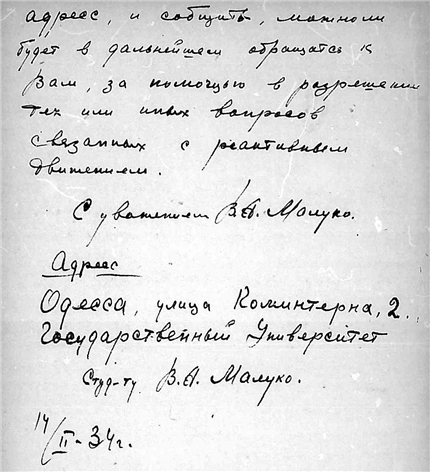 адресс, и собщить, можноли
будет в дальнейшем обращатся к
Вам, за помощью в разрешении
тех или иных вопросов
связанных с реактивным
движением.
С уважением В.А. Малуко.
Адресс
Одесса, улица Коминтерна, 2.
Государственный Университет
Студ-ту В.А. Малуко.
14/II-34г.